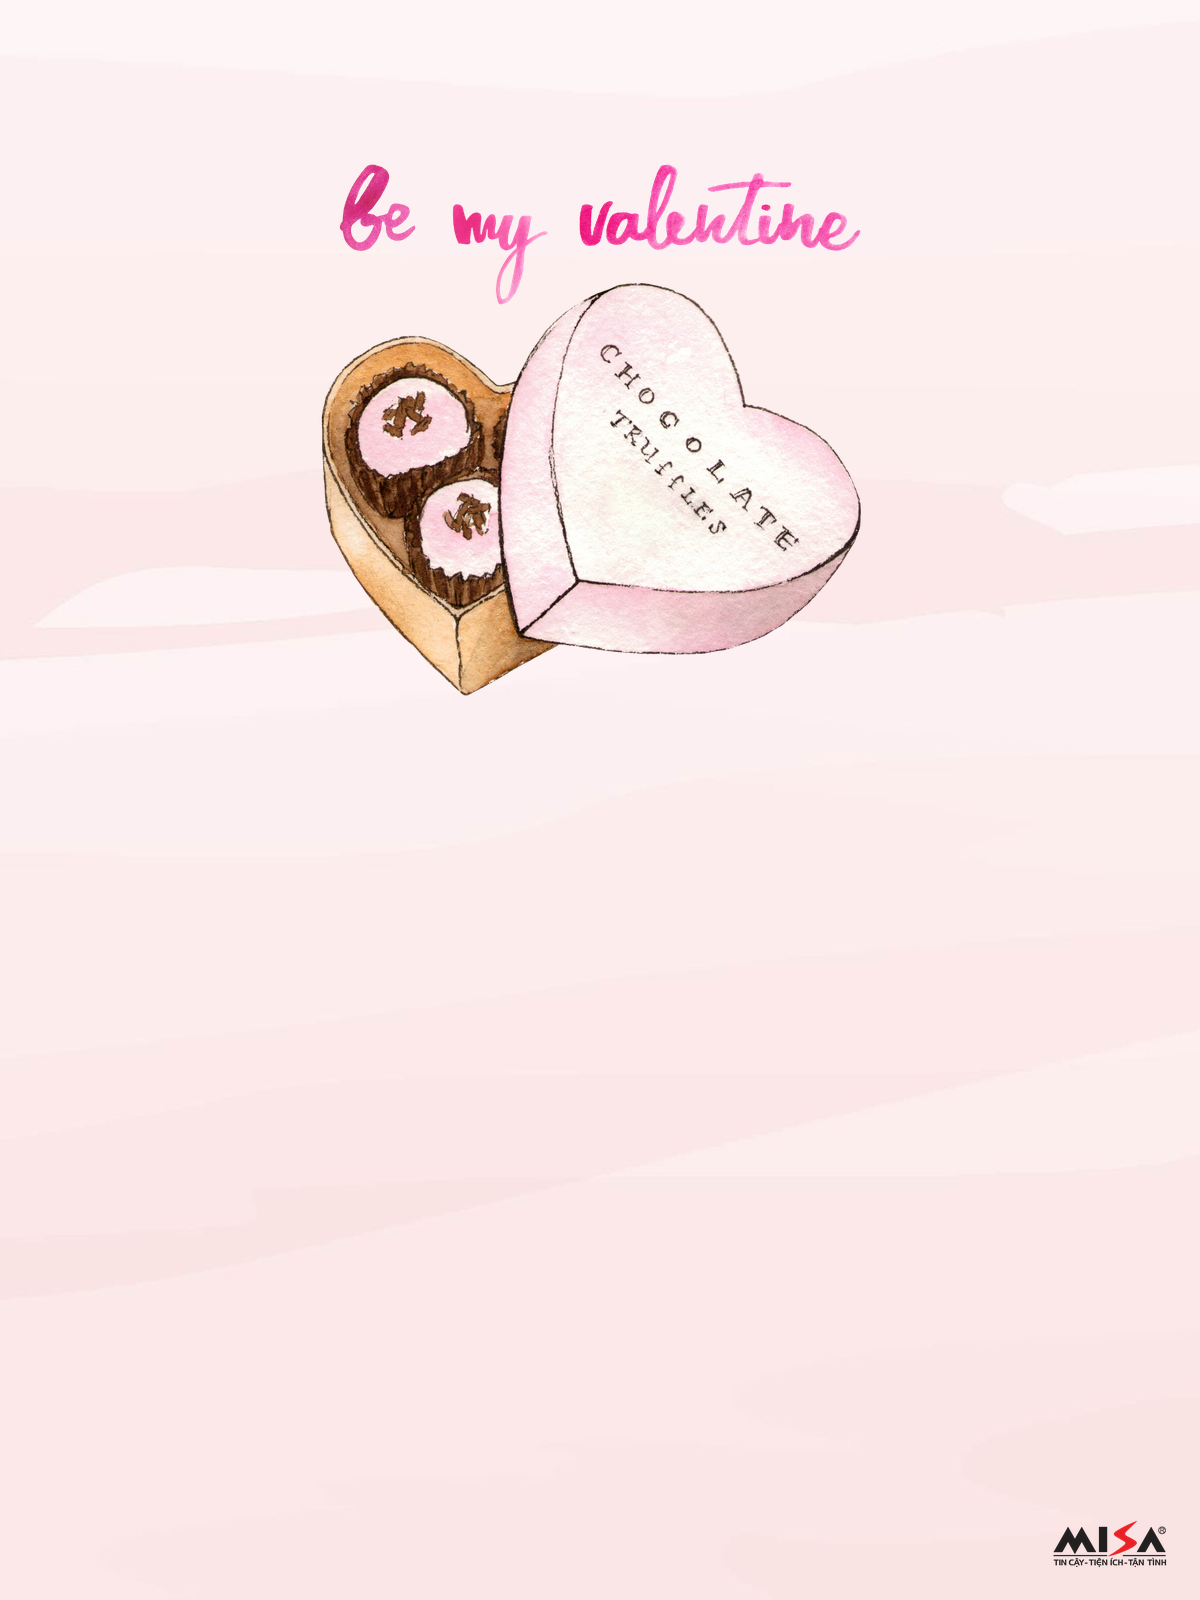 be my valentine
CHOCOLATE
TRUffLES
MISA®
TIN CẬY-TIỆN ÍCH-TẬN TÌNH